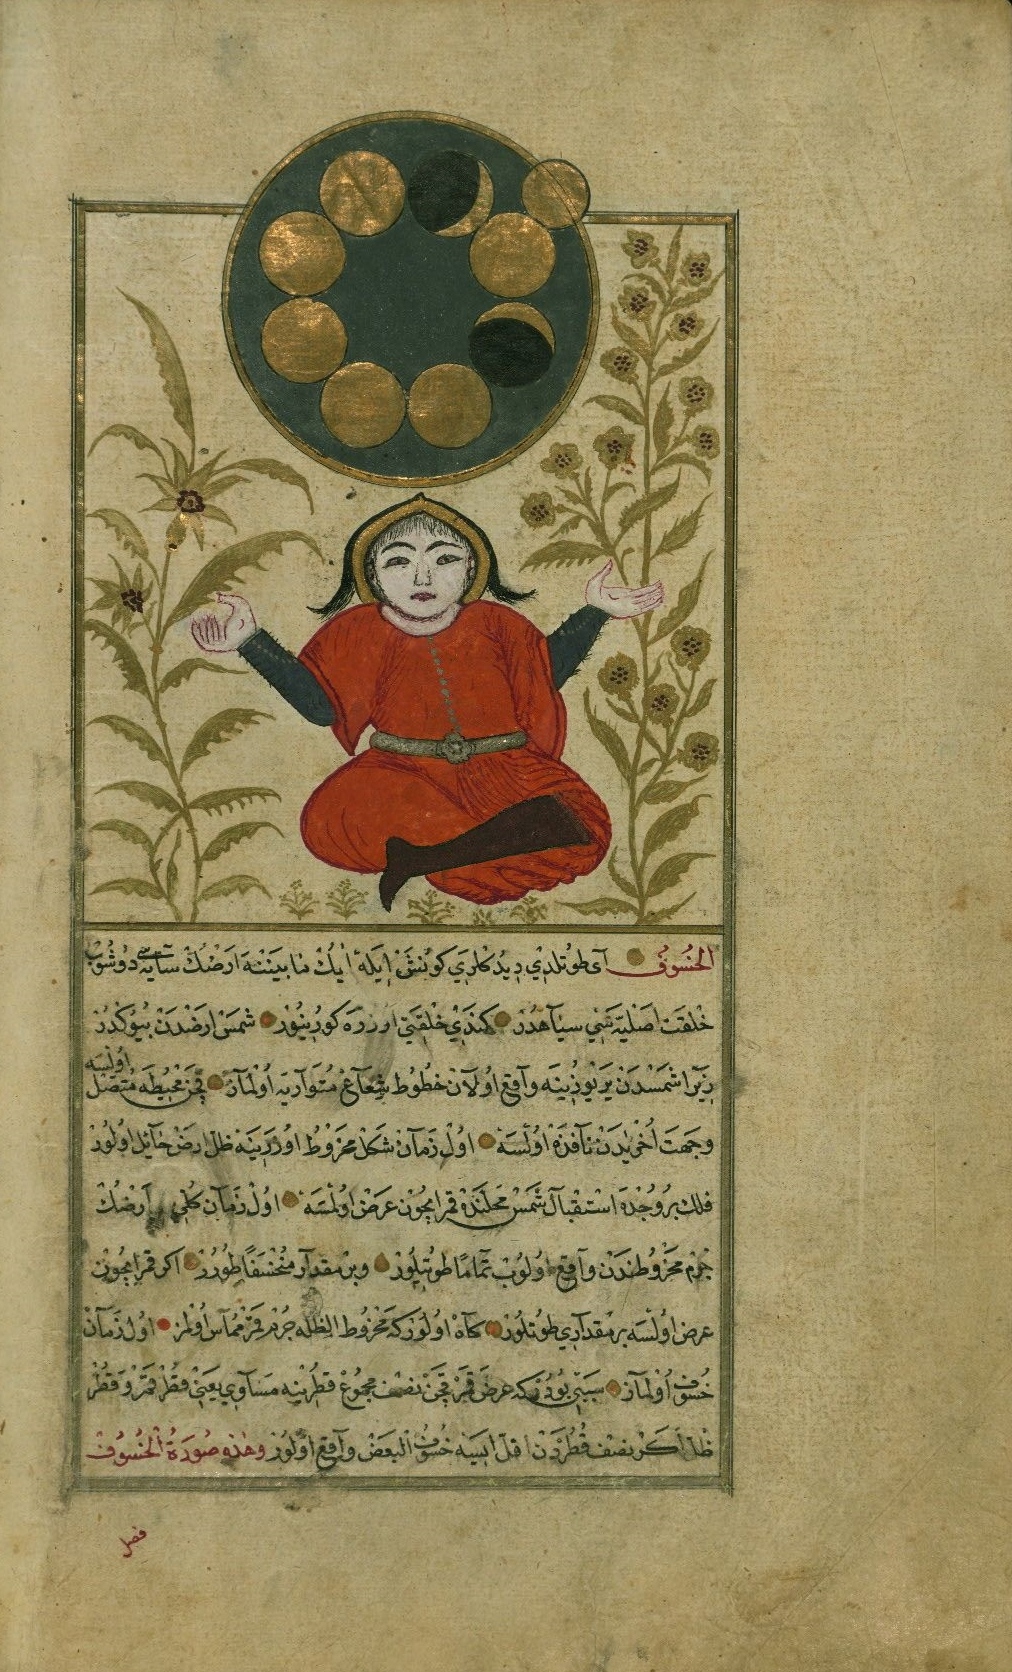 الخسوف آی طوتلدي ديدكلري كونش ايله ايك مابيننه ارضك سايه سي دوشوب
خلقت اصليه سي سياهدر كندي خلقتي اوزره كورينور شمس ارضدن بيوكدر
زيرا شمسدن ير يوزينه واقع اولان خطوط شعاع متوازيه اولماز قچن محيطه متصل اولسه
وجهت اخريدن نافذه اولسه اول زمان شكل مخروط اوزرينه ظل ارض حايل اولور
فلك بروجده استقبال شمس محلنده قمر ايچون عرض اولمسه اول زمان كلي ارضك
جرم مخروطندن واقع اولوب تماما طوتيلور وبر مقدار منخسفا طورر اكر قمر ايچون
عرض اولسه بر مقداري طوتلور كاه اولور كه مخروط الظله جرم قمر مماس اولمز اول زمان
خسوف اولماز سببي بودر كه عرض قمر قچن نصف مجموع قطرينه مساوي يعني قطر قمر وقطر
ظل اكر نصف قطردن اقل ايسه خسوف البعض واقع اولور وهذه صورة الخسوف
فصل